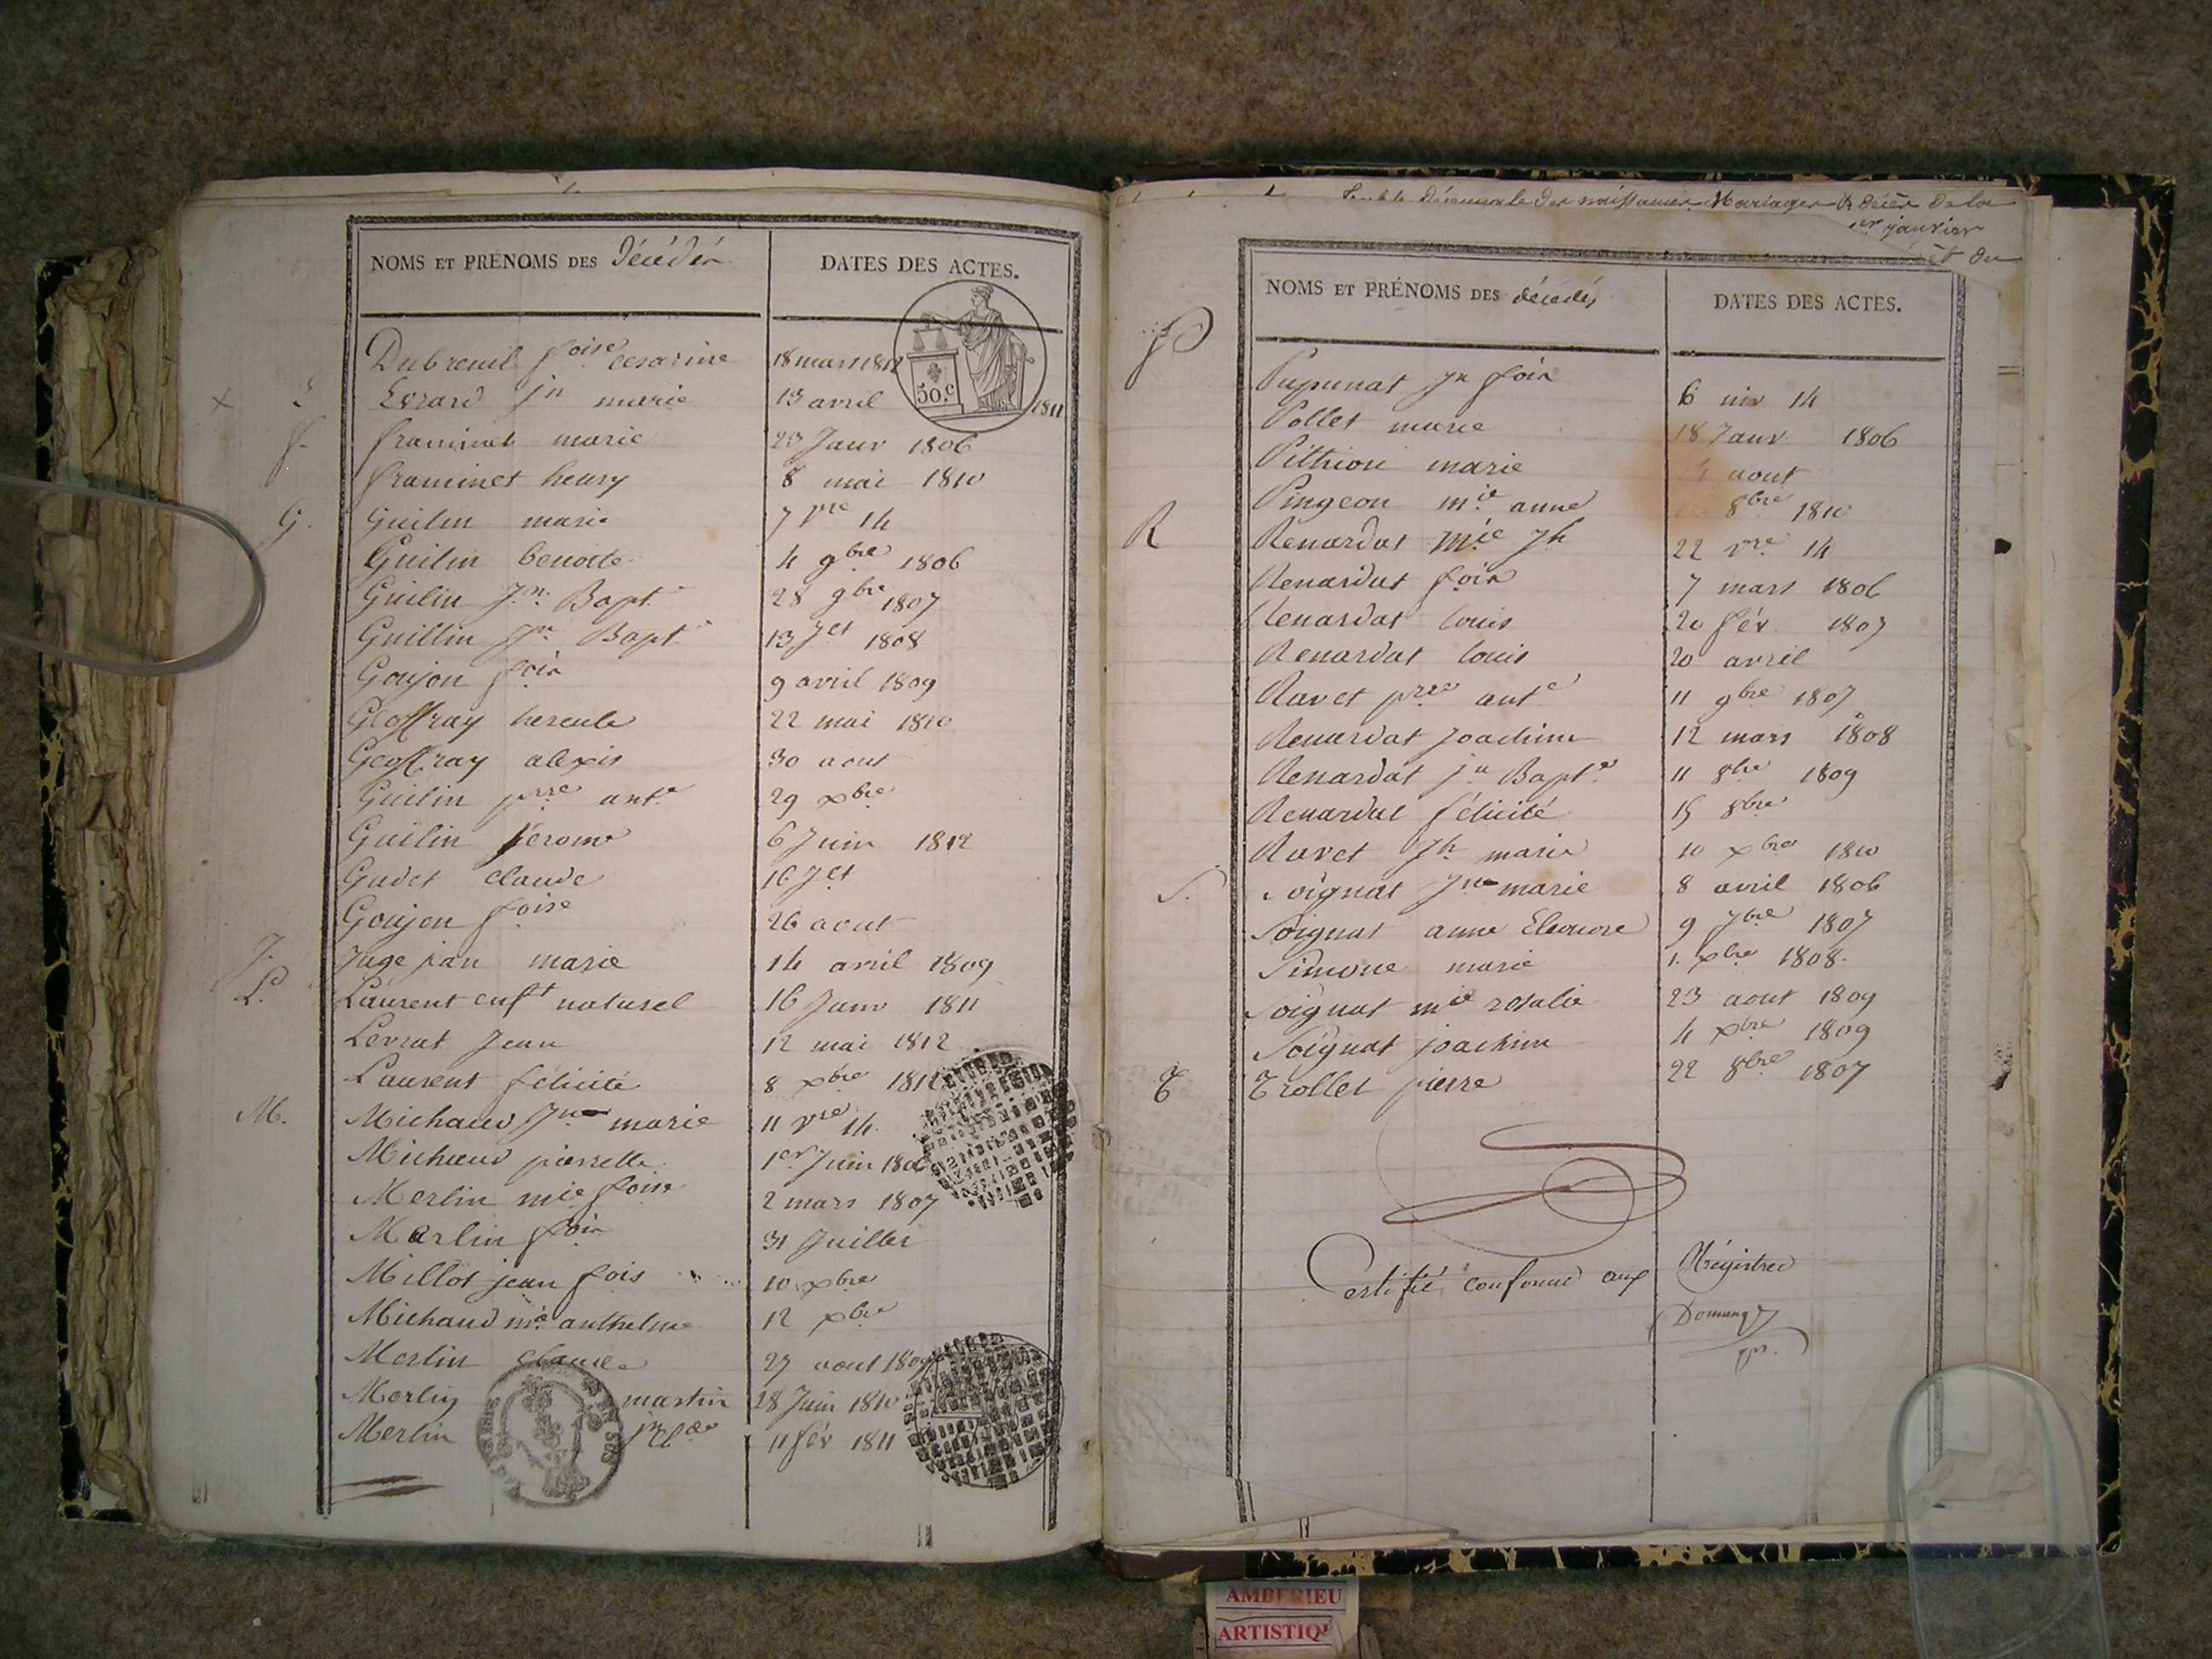 NOMS ET PRÉNOMS DES Décédés DATES DES ACTES.
Dubreuil foise Cesarine 18 mars 1812
Evrard jn marie 13 avril 1811
50.c
f. framinet marie 23 Janv 1806
framinet henry 8 mai 1810
G. Guilin marie 7 vre 14
Guilin benoite 4 9bre 1806
Guilin Jn Bapt 28 9bre 1807
Guillin Jn Bapt 13 Jet 1808
Goujon fois 9 avril 1809
Geoffray hercule 22 mai 1810
Geoffray alexis 30 aout
Guilin prre ante 29 xbre
Guilin Jerome 6 Juin 1812
Gudet claude 16 Jet
Goujon foise 26 aout
J. Juge jan marie 14 avril 1809
L. Laurent enft naturel 16 Janv 1811
Levrat Jean 12 mai 1812
Laurent félicité 8 xbre 1812
M. Michaud Jne marie 11 vre 14
Michaud pierrette 1er Juin 1806
Merlin mie foise 2 mars 1807
Merlin fois 31 Juillet
Millot jean fois 10 xbre
Michaud mie anthelme 12 xbre
Merlin claude 27 aout 1809
Merlin martin 28 Juin 1810
Merlin jn Cde 11 fév 1811
Table décennale des naissances Mariages & décès de la
1er janvier
et du
NOMS ET PRÉNOMS DES décédés DATES DES ACTES.
P Pupunat Jn fois 6 niv 14
Pollet marie 18 Janv. 1806
Pithion marie aout
Pingeon mie anne 8bre 1810
R Renardat mie Jh 22 vre 14
Renardat fois 7 mars 1806
Renardat louis 20 fév 1807
Renardat louis 20 avril
Ravet prre ante 11 9bre 1807
Renardat Joachim 12 mars 1808
Renardat jn Bapte 11 8bre 1809
Renardat félicité 15 8bre
Ravet Jh marie 10 xbre 1810
S. Soignat Jne marie 8 avril 1806
Soignat anne Eleonore 9 7bre 1807
Simone marie 1. xbre 1808
Soignat mie rosalie 23 aout 1809
Soignat joachim 4 xbre 1809
T Trollet pierre 22 8bre 1807
Certifié conforme aux Régistres
AMBERIEU
ARTISTIQ